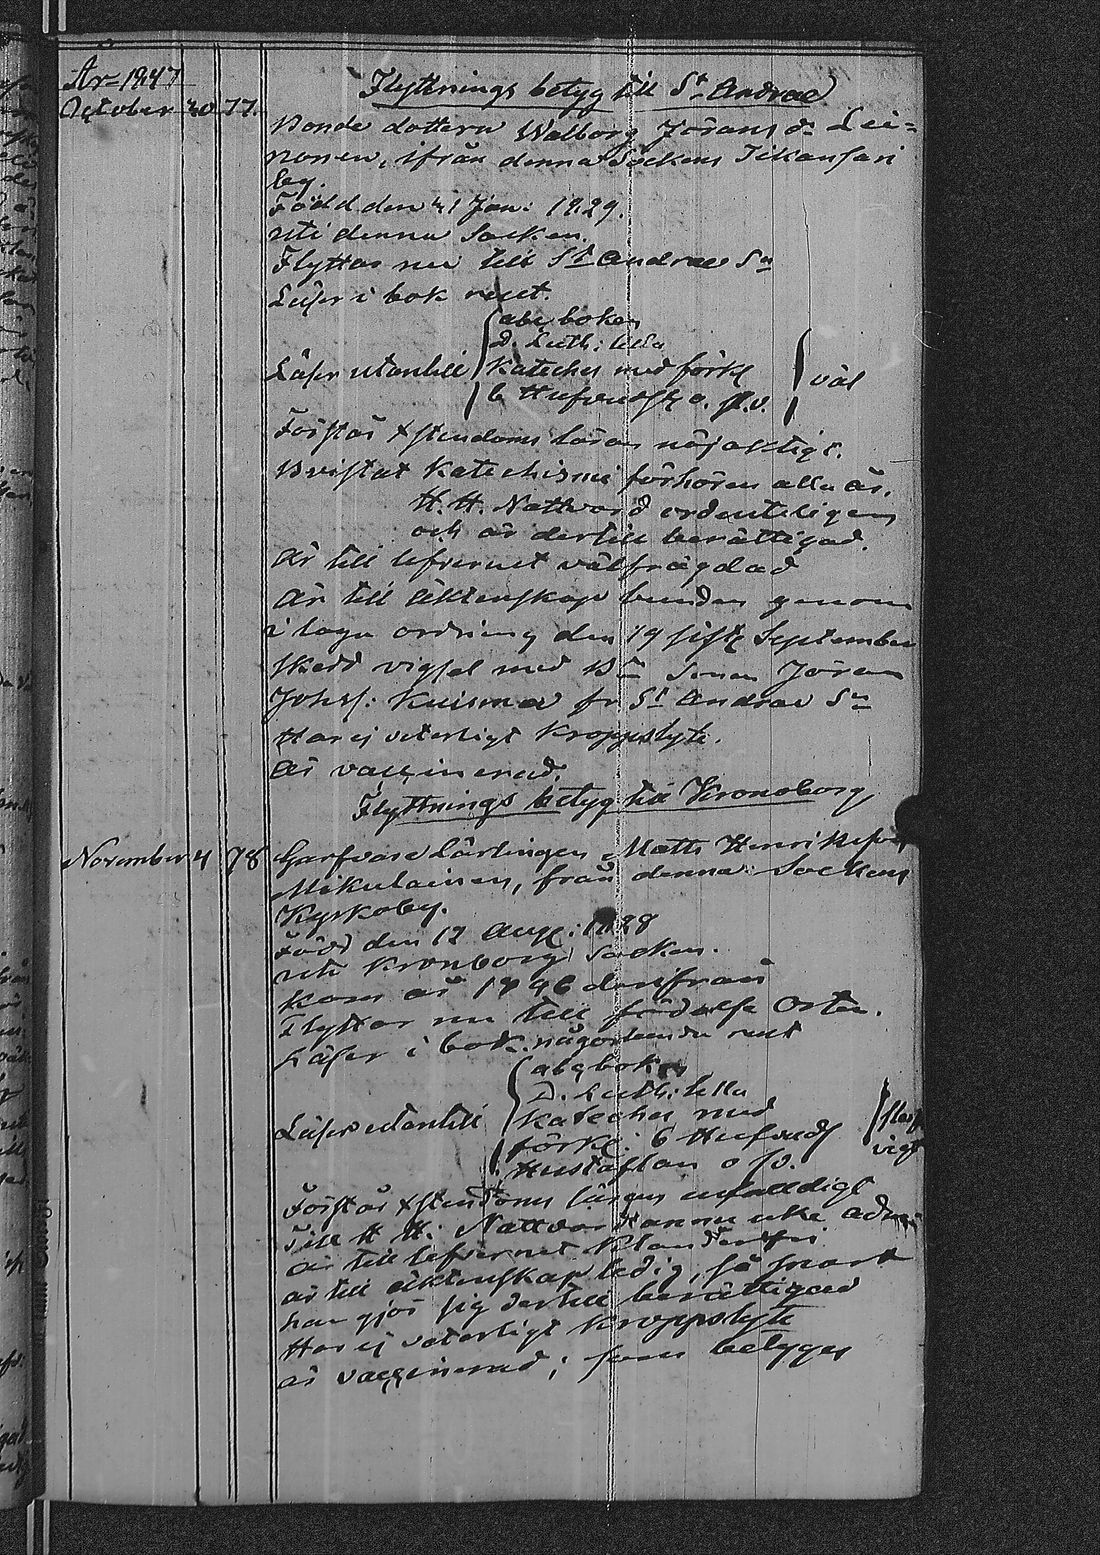 År 1847
Flyttnings betyg till St Andrae
October 20 77.
Bonde dottern Walborg Jörans dr Lei=
nonen, ifrån denna Sockens Tikansari
by.
Född den 21 Jan: 1829.
uti denna Socken.
Flyttar nu till St Andrae Sn
Läser i bok rent.
Läser utantill { abc boken
D. Luth: lilla
Kateches med förkl
6 Hufvudst. o. s.v. } väl
Förstår Xstendoms läran nöjaktigt.
Bvistat Katechismi förhören alla år.
H. H. Nattvard ordenteligen
och är dertill berättigad.
Är till lefvernet välfrägdad
Är till äktenskap bunden genom
i laga ordning den 19 sistl September
skedd vigsel med Bde Sonen Jöran
Johss: Kuisma fr St Andrae Sn
Har ej veterligt kroppslyte.
Är vaccinerad.
Flyttnings betyg till Kronoborg
November 4 78 Garfvare Lärlingen Matts Henriksson
Mikulainen, från denna Sockens
Kyrkoby.
Född den 12 Aug: 1828
uti Kronborg Socken.
Kom år 1846 derifrån
Flyttar nu till födelse Orten.
Läser i bok någorlunda rent
Läser utantill { abcboken
D. Luth: lilla
Kateches med
förkl: 6 Hufvudst
Hustaflan o s.v.
Förstår Xstendoms läran enfaldigt
Till H H: Nattvard ännu icke adm:
är till lefvernet klanderfri
är till äktenskap ledig, så snart
han gjör sig dertill berättigad
Har ej veterligt kroppslyte
är vaccinerad; som betygas